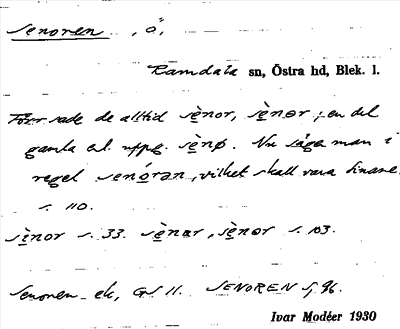 Senoren , ö,
Ramdala sn, Östra hd, Blek. l.
Förr sade de alltid sènor, sènər; en del
gamla enl. uppg. sènø. Nu säga man i
regel senóran, vilket skall vara finare.
s. 110.
sènor s. 33. sènar, sènər s. 103.
Senoren ek, GS 11. SENOREN Sj 96.
Ivar Modéer 1930